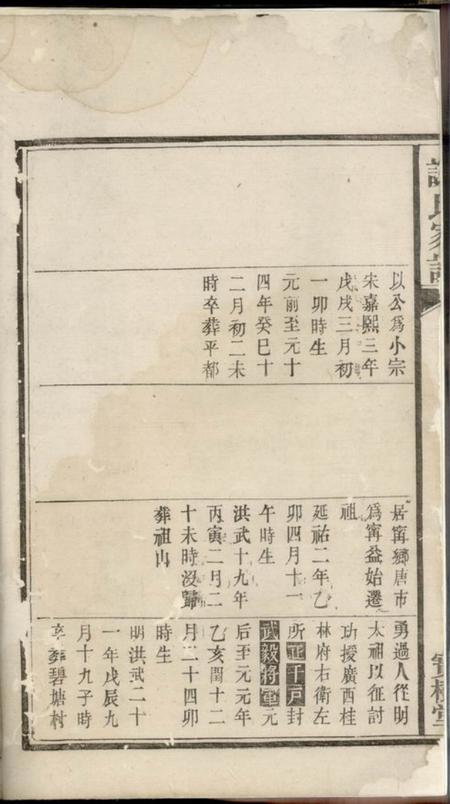 氏家譜
以公爲小宗
宋嘉熙三年
戊戌三月初
一卯時生
元前至元十
四年癸巳十
二月初二未
時卒葬平都
居甯鄉唐市
爲甯益始遷
祖
延祐二年乙
卯四月十一
午時生
洪武十九年
丙寅二月二
十未時沒歸
葬祖山
勇過人從明
太祖以征討
功授廣西桂
林府右衛左
所正千戸封
武毅將軍元
后至元元年
乙亥閏十二
月二十四卯
時生
明洪武二十
一年戊辰九
月十九子時
卒葬碧塘村
寶樹堂